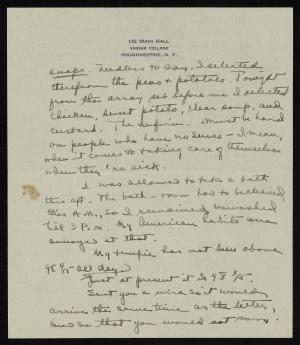 142 MAIN HALL
VASSAR COLLEGE
POUGHKEEPSIE, N. Y.
snaps. Needless to say, I selected
therefrom the peas & potatoes. Tonight
from the array set before me I selected
chicken, sweet potato, clear soup, and
custard. Tho. Must be hard
on people who have no sense – I mean,
when it comes to taking care of themselves
when they're sick.
I was allowed to take a bath
this aft. The bath-room has to be cleaned
this A.M., so I remained unwashed
till 3 P.M. My American habits were
annoyed at that.
My tempie has not been above
98 4/5 all day.
Just at present it is 98 3/5.
Sent you a wire so it would
arrive the same time as the letter,
and so that you would not worry.